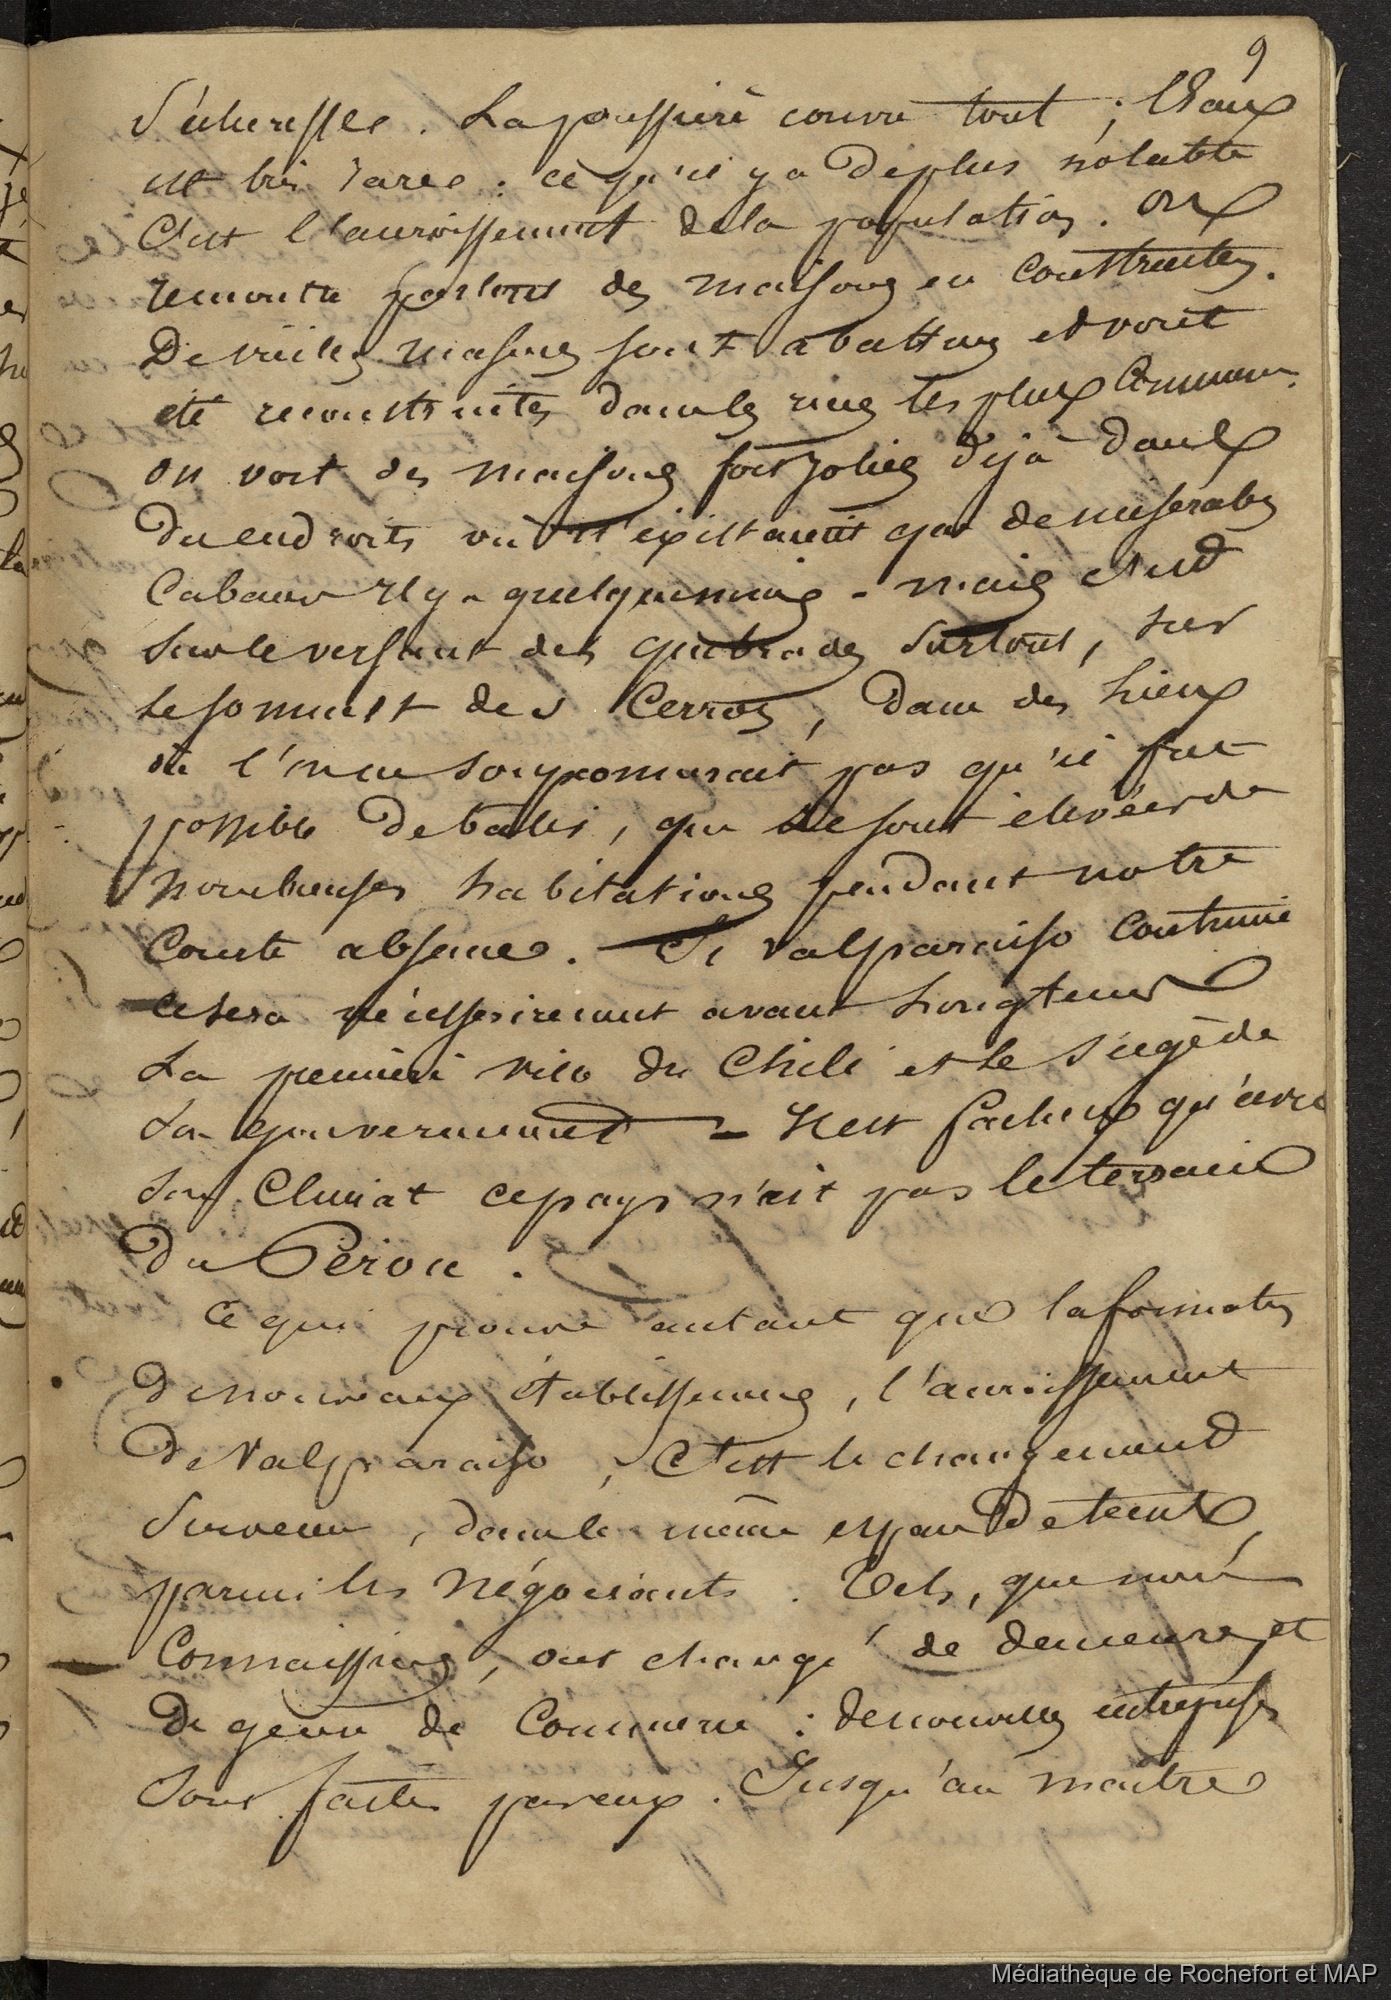 9
Sécheresse. La poussière couvre tout ; l'Eau
est très rare : ce qu'il y a de plus notable
C'est l'accroissement de la population. On
rencontre partout des maisons en Construction.
De vieilles masures sont abattues et vont
été reconstruites dans les rues les plus Communes.
On voit des maisons fort jolies déjà dans
des endroits où n'existaient que de misérables
Cabanes il y a quelques mois - mais c'est
sur le versant des quebradas surtout, sur
le sommet des Cerros, dans des lieux
où l'on ne soupçonnerait pas qu'il fut
possible de bâtir, que se sont élevées de
nombreuses habitations pendant notre
Courte absence. Si Valparaiso Continue
ce sera nécessairement avant longtems
La première ville du Chili et le siège de
Son gouvernement - Il est fâcheux qu'avec
son Climat ce pays n'ait pas le terrain
Du Pérou.
Ce qui prouve autant que la formation
de nouveaux établissemens, l'accroissement
De Valparaiso, C'est le changement
Survenu, dans le même espace de tems
parmi les Négociants. Tels, que nous
Connaissions, ont changé de demeure et
De genre de Commerce : de nouvelles entreprises
sont faites par eux. Jusqu'au maître
Médiathèque de Rochefort et MAP